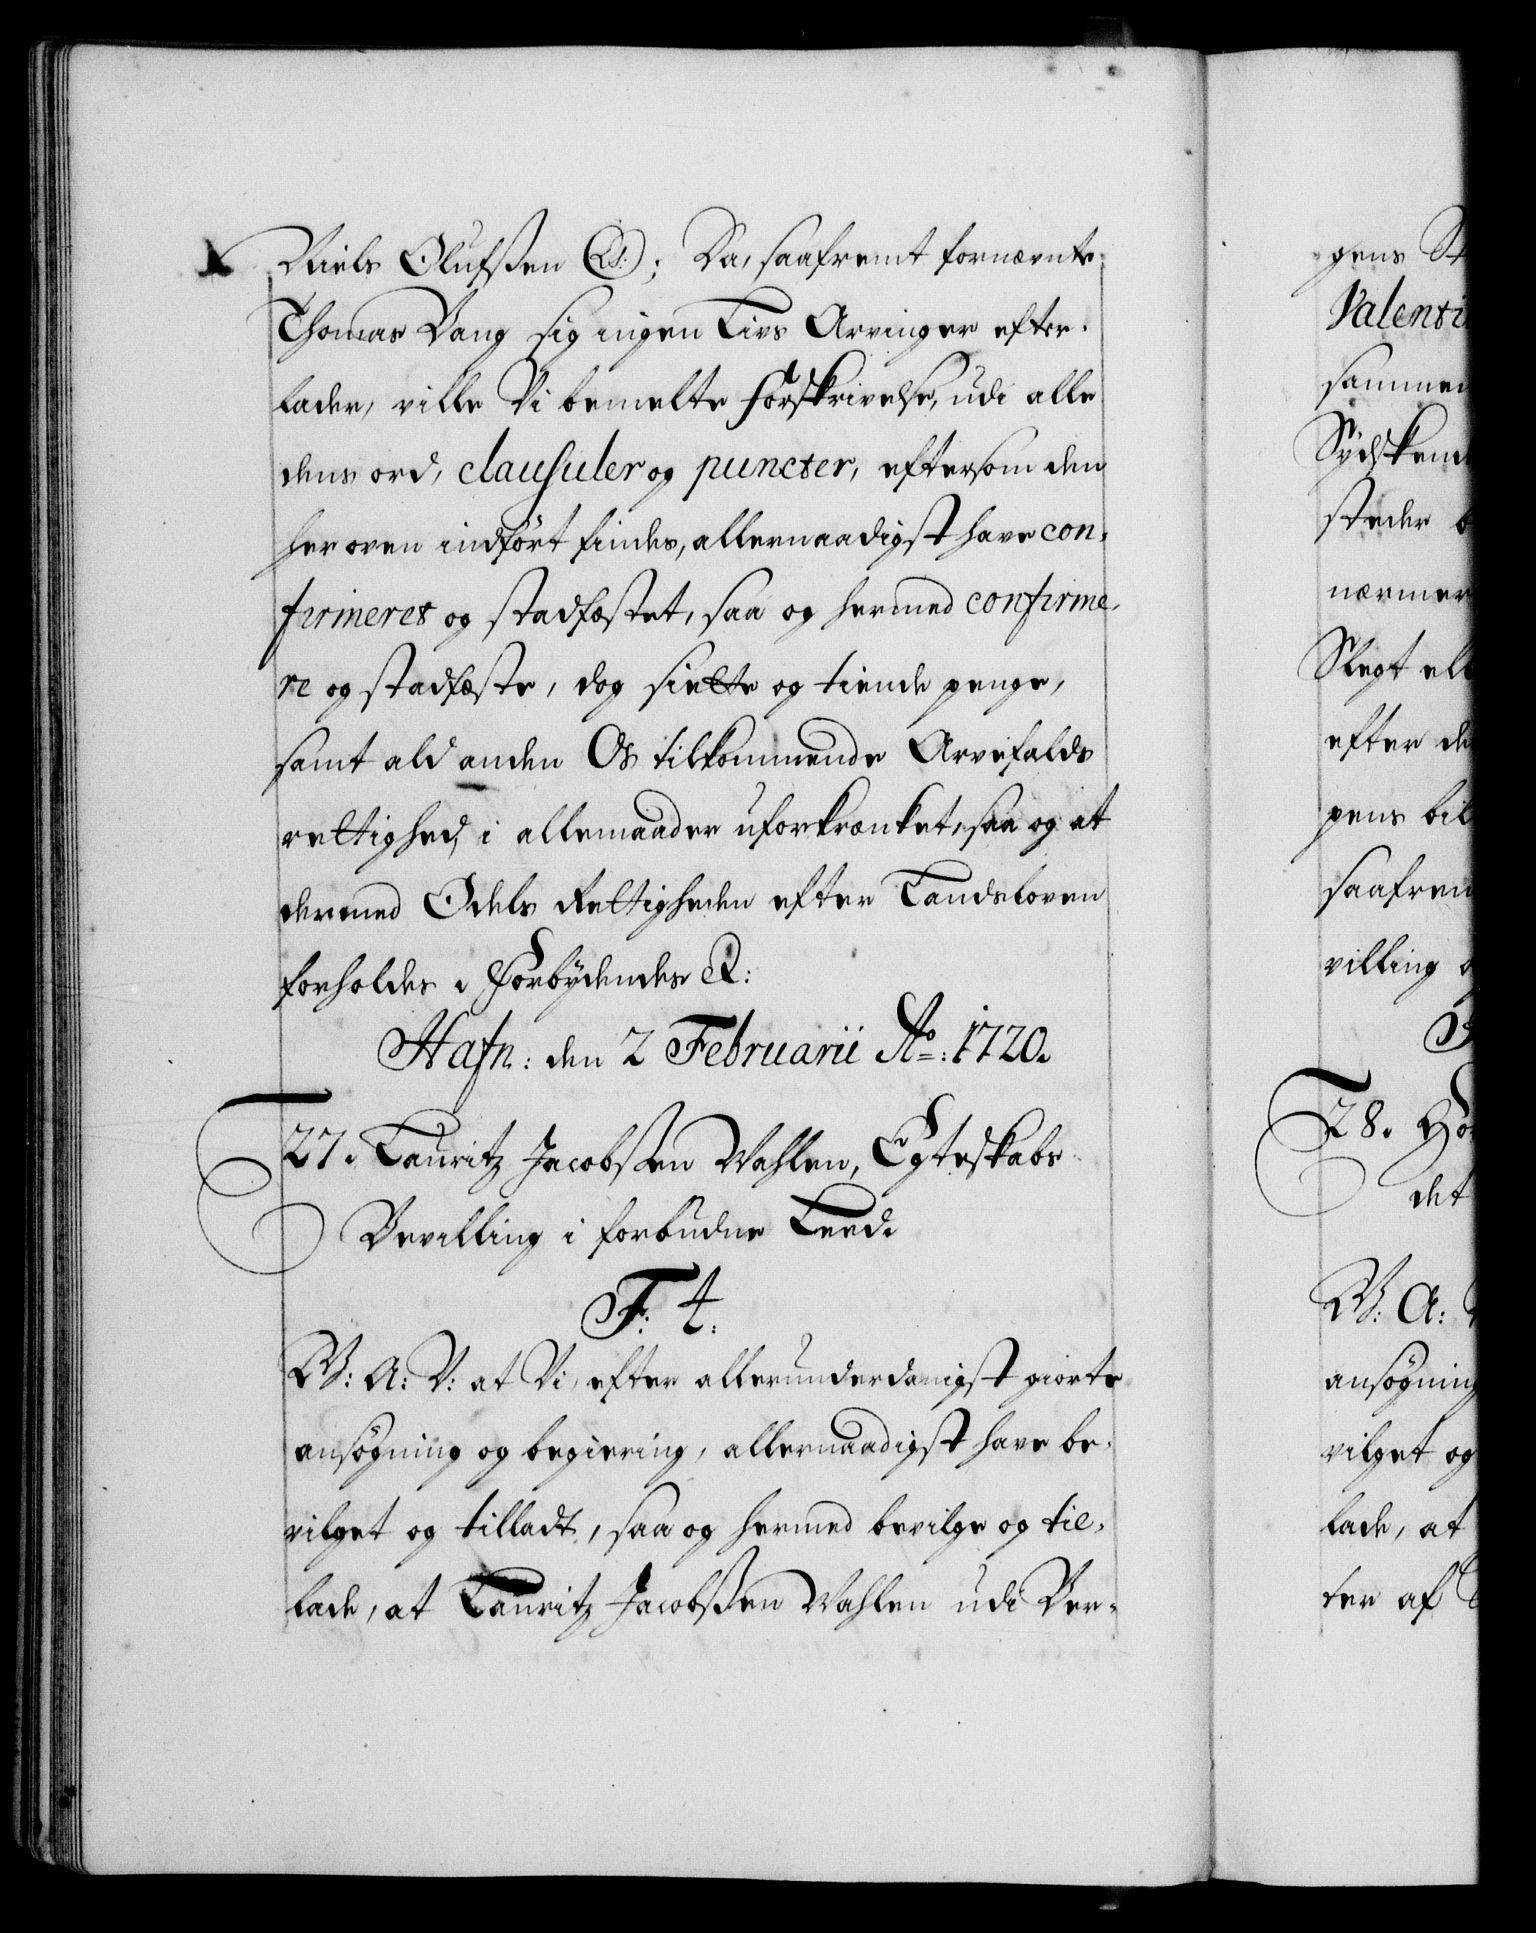 Niels Olufsen (LS:); Da, saafremt fornævnte
Thomas Vang sig ingen Livs Arvinger efter-
lader, ville Vi bemelte Forskrivelse, udi alle
dens ord, clausuler og puncter, eftersom den
her oven indført findes, allernaadigst have con-
firmeret og stadfæstet, saa og hermed confirme-
re og stadfæste, dog siette og tiende penge,
samt ald anden Os tilkommende Arvefalds
rettighed, i allemaader uforkrænket, saa og at
dermed Odels Rettigheden efter Landsloven
forholdes. Forbydendes &:
Hafn: den 2 Februarii Ao: 1720.
27. Lauritz Jacobsen Wahlen, Egteskabs
Bevilling i forbudne Leed.
F: 4.
W: A: V: at Vi, efter allerunderdanigst giorte
ansøgning og begiering, allernaadigst have be-
vilget og tilladt, saa og hermed bevilge og til-
lade, at Lauritz Jacobsen Wahlen udi Ber-
gens St
Valenti
sammen
Sydsken
steder
nærmer
Slegt ell
efter de
pens bil
saafrem
villing o
28.
det
W: A:
ansøgning
vilget og
lade, at
ter af